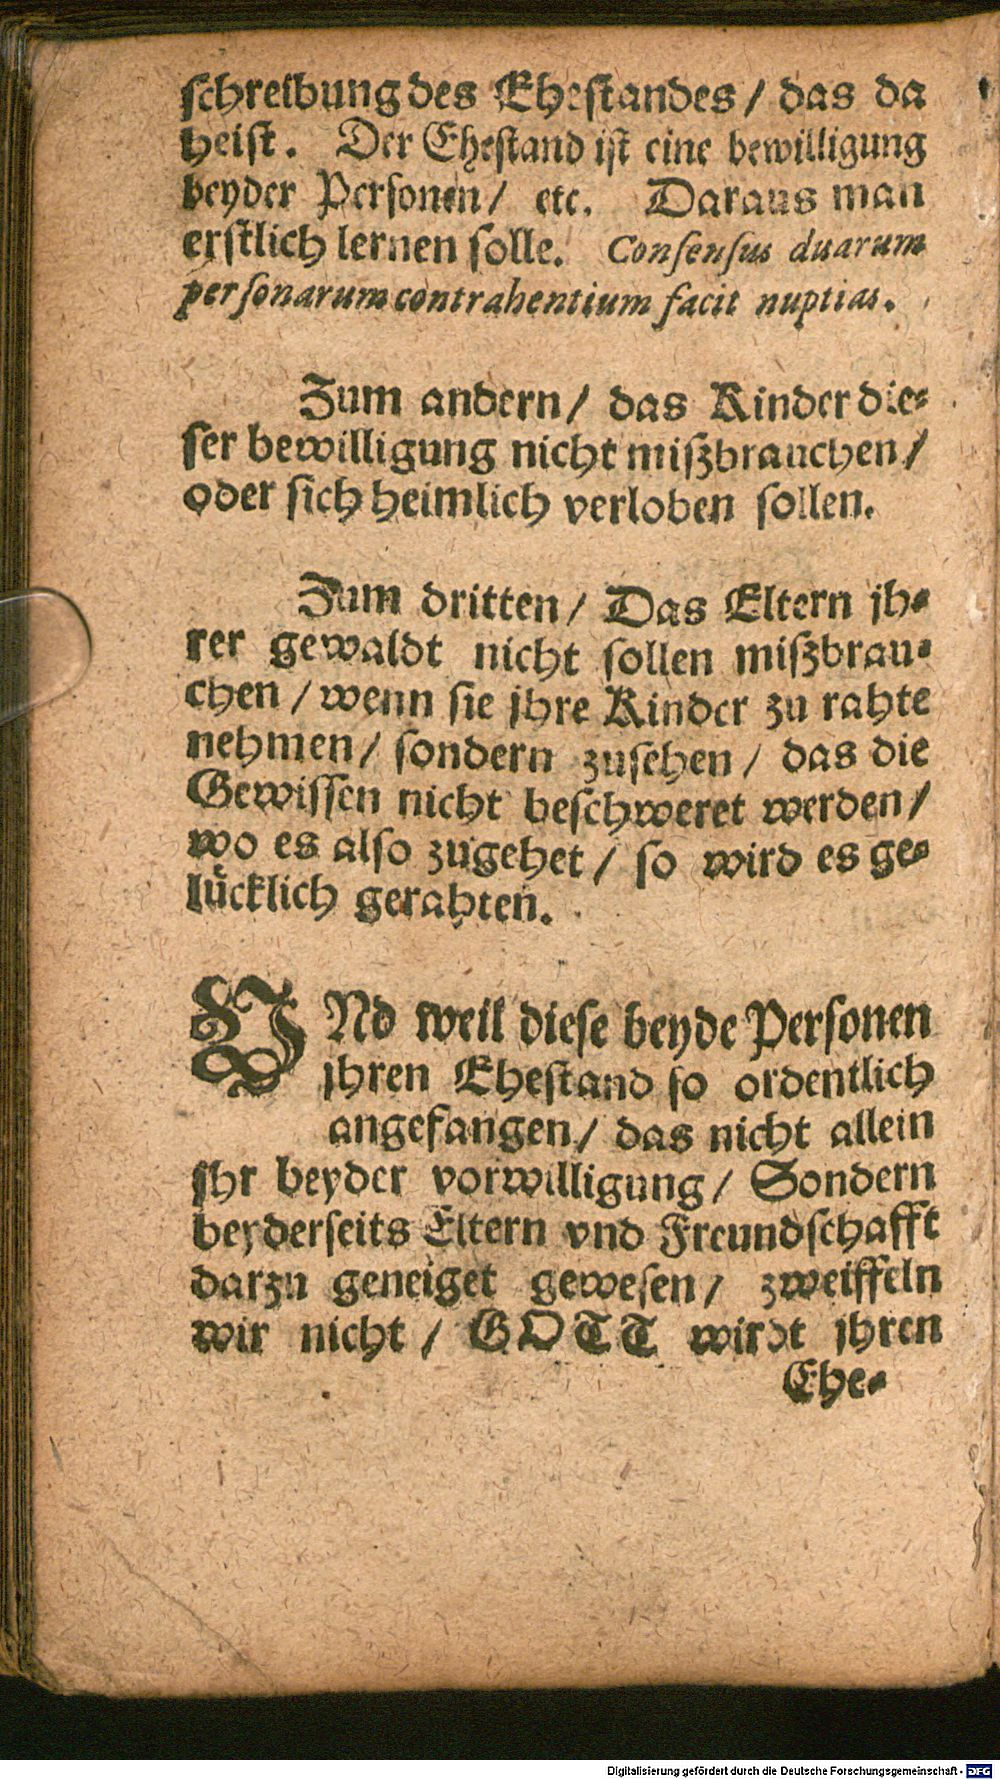 schreibung des Ehestandes / das da
heist. Der Ehestand ist eine bewilligung
beyder Personen / etc. Daraus man
erstlich lernen solle. Consensus duarum
personarum contrahentium facit nuptias.
Zum andern / das Kinder die⸗
ser bewilligung nicht miszbrauchen /
oder sich heimlich verloben sollen.
Zum dritten / Das Eltern jh⸗
rer gewaldt nicht sollen miszbrau⸗
chen / wenn sie jhre Kinder zu rahte
nehmen / sondern zusehen / das die
Gewissen nicht beschweret werden /
wo es also zugehet / so wird es ge⸗
lücklich gerahten.
VNd weil diese beyde Personen
jhren Ehestand so ordentlich
angefangen / das nicht allein
jhr beyder vorwilligung / Sondern
beyderseits Eltern vnd Freundschafft
darzu geneiget gewesen / zweiffeln
wir nicht / GOTT wirdt jhren
Ehe⸗
Digitalisierung gefördert durch die Deutsche Forschungsgemeinschaft - DFG